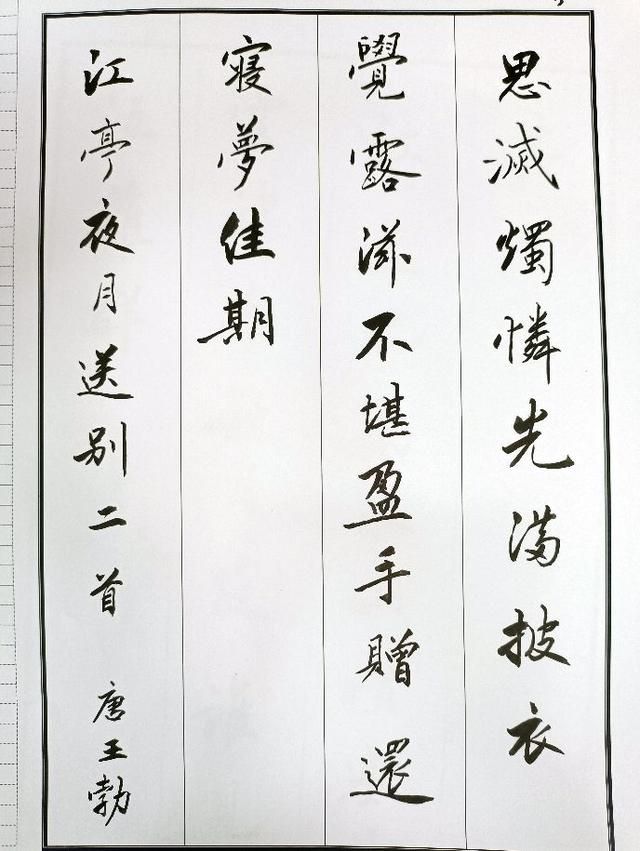 思滅燭憐先滿披衣
覺露滋不堪盈手贈還
寢夢佳期
江亭夜月送别二首 唐王勃